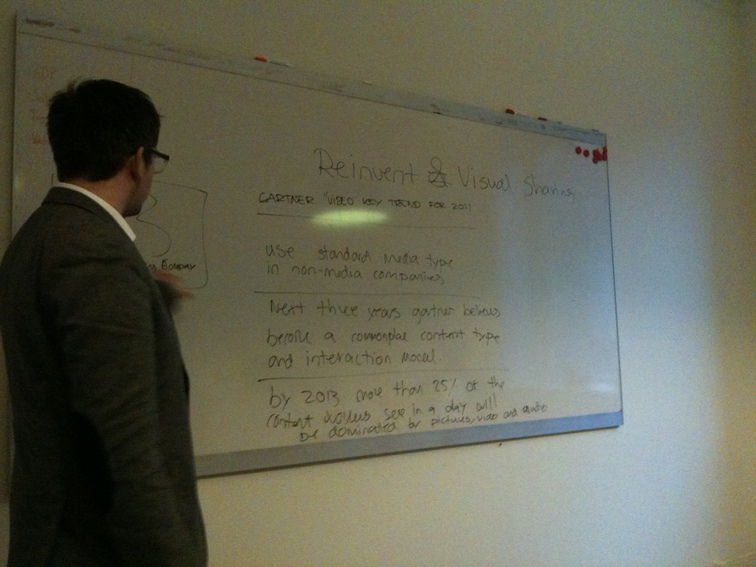 Reinvent & Visual Sharing
GARTNER VIDEO KEY TREND FOR 2011
use standard media type
in non-media companies
Next three years gartner believs
a content type
and interaction model.
by 2013 more than 25% of the
content see in a day will
be dominated by pictures, video and audio